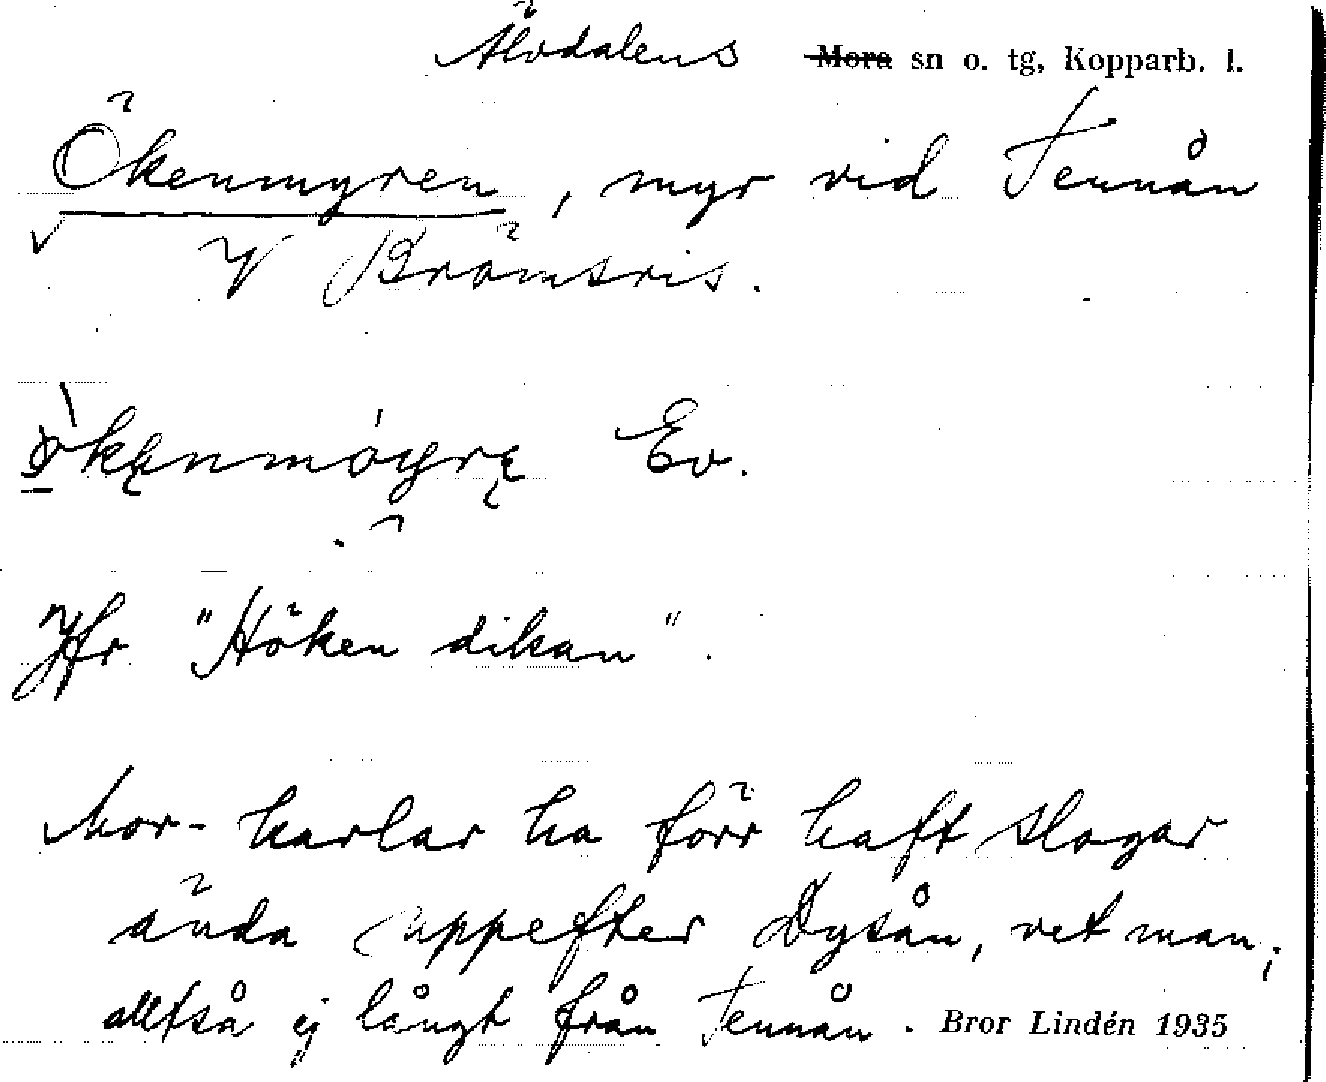 Älvdalens Mora sn o. tg, Kopparb. l.
Ökenmyren, myr vid Tennån
V Brömsris.
økęnmöyrę Ev.
Jfr "Höken dikan".
Mor-karlar ha förr haft slogar
ända uppefter Dysån, vet man;
alltså ej långt från Tennån. Bror Lindén 1935